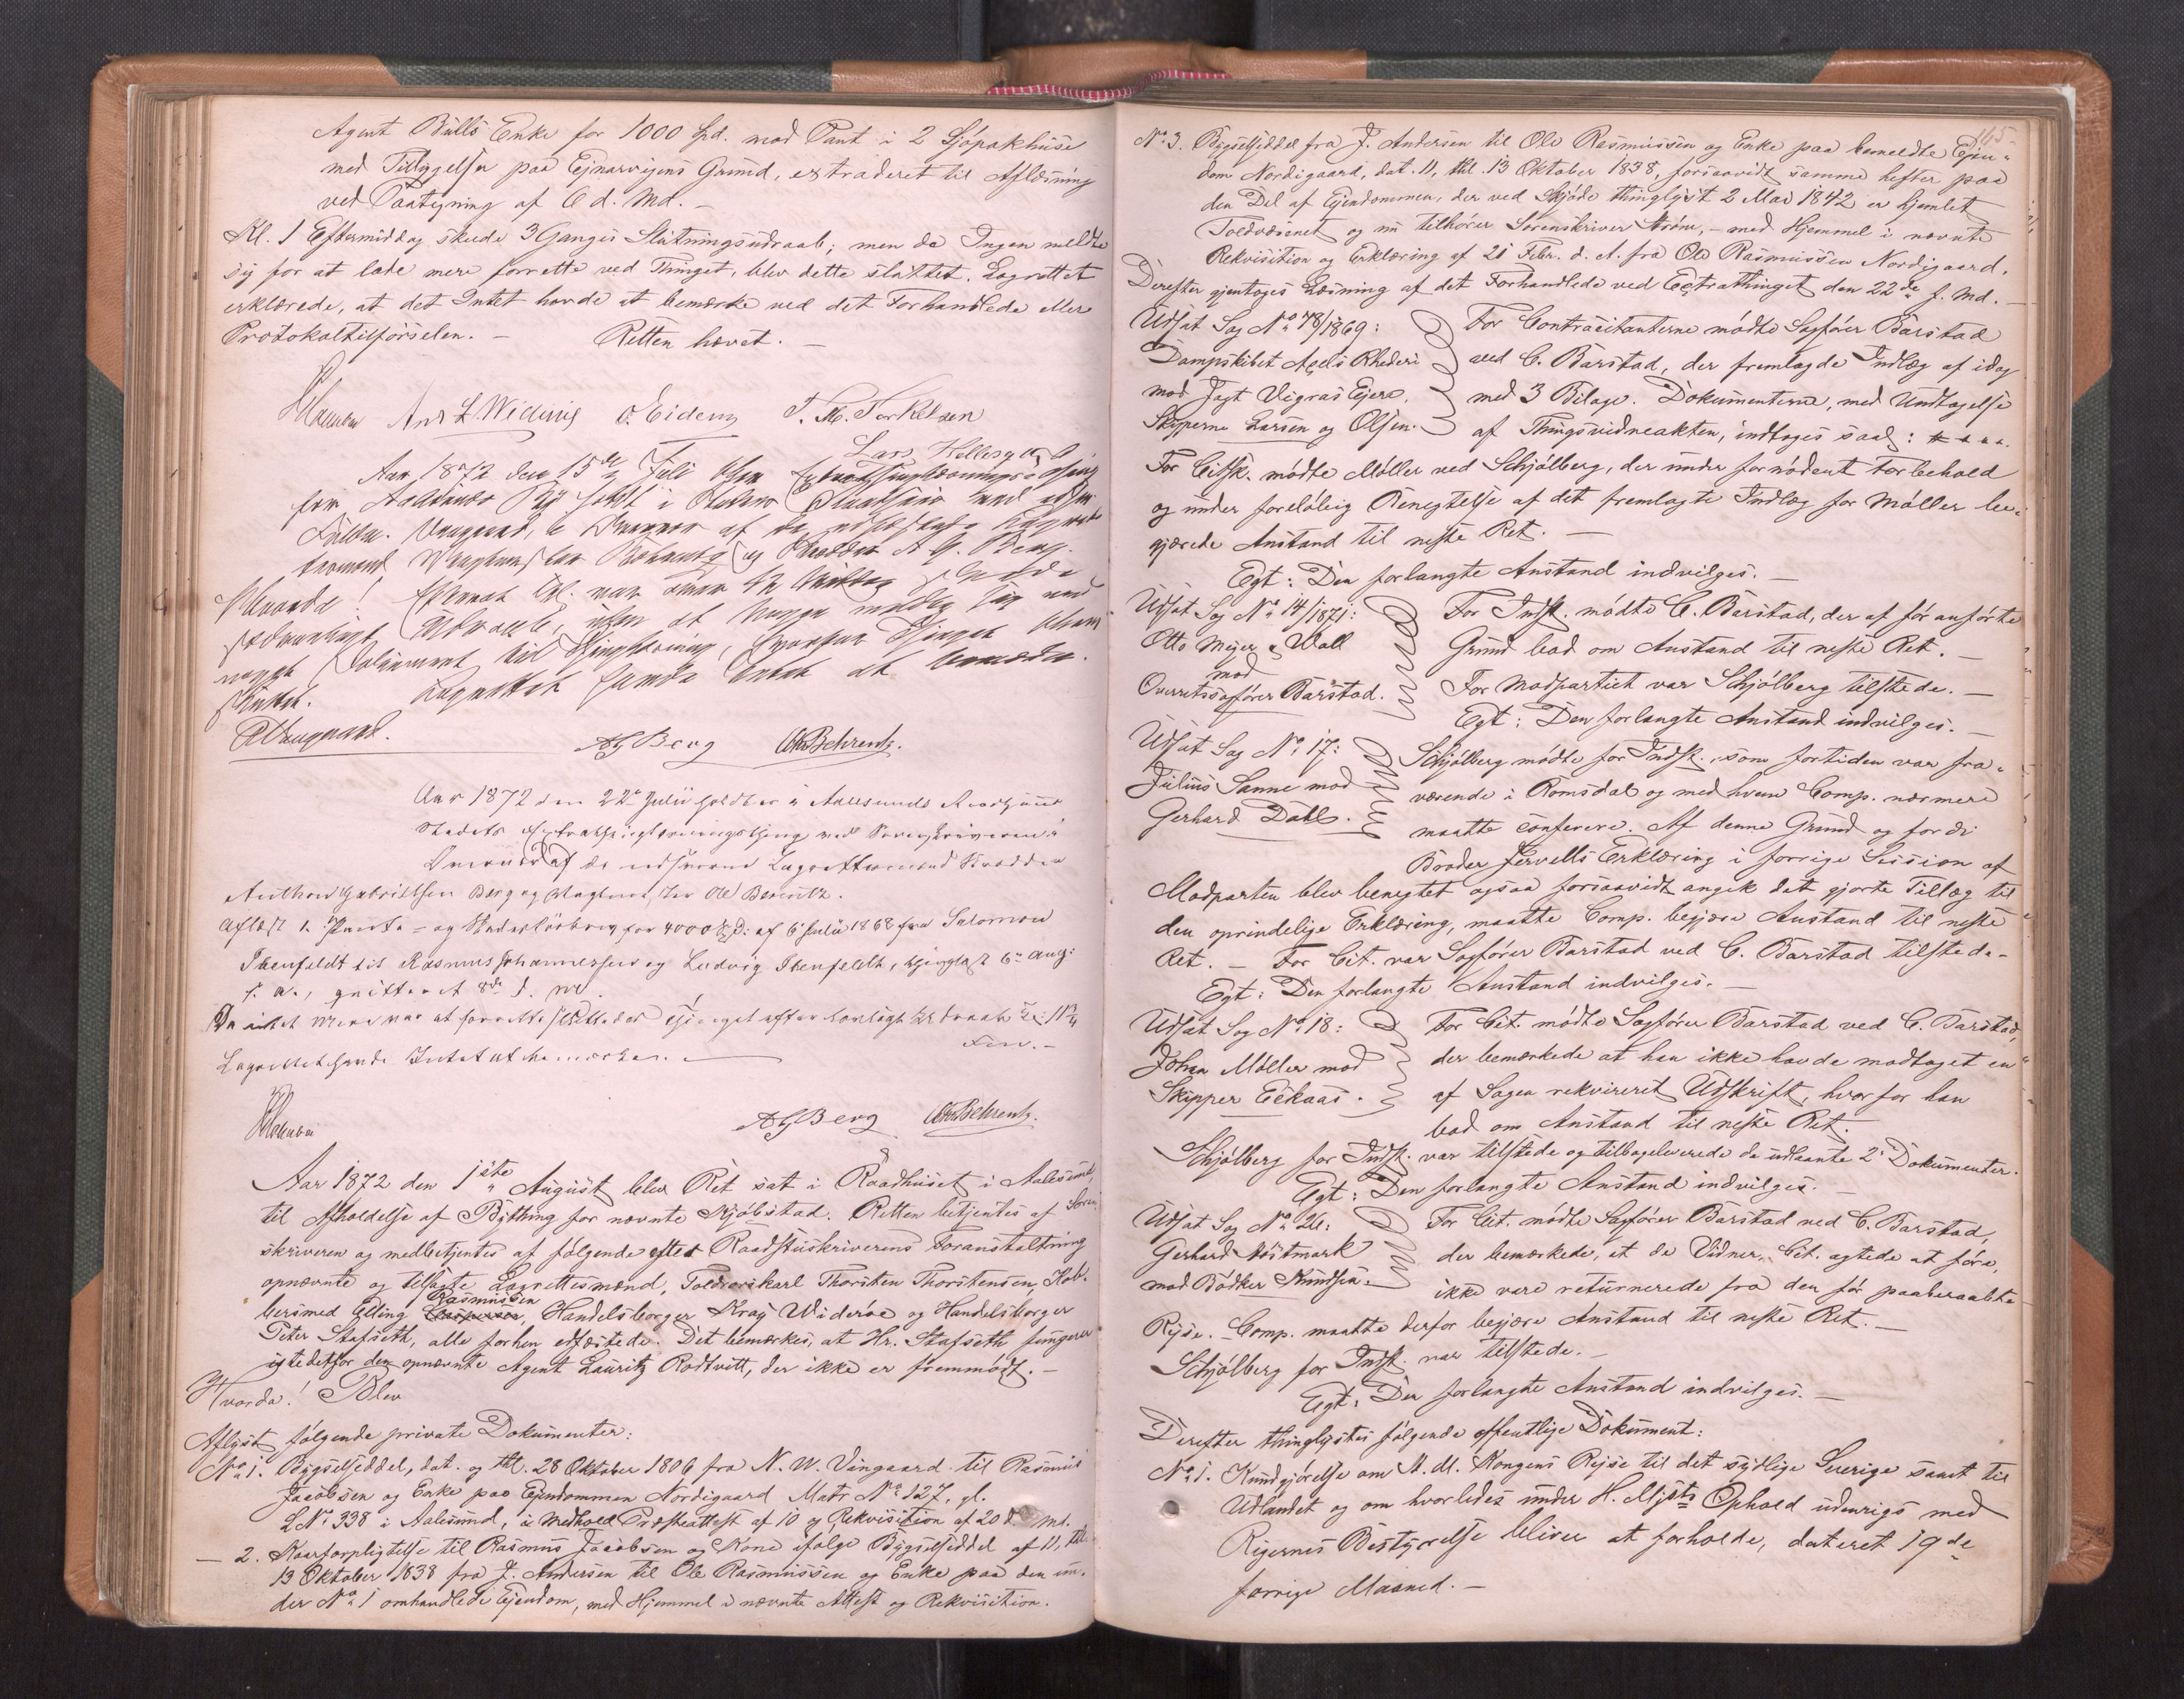 Agent Bülls Enke for 1000 Spd. mod Pant i 2 Sjøpakhuse
med Tilliggelser paa Ejnarvigens Grund, extraderet til Aflæsning
ved Paategning af 6 d. Md. —
Kl. 1 Eftermiddag skede 3 Ganges Slutningsudraab; men da Ingen meldte
sig for at lade mere forrette ved Thinget, blev dette sluttet. Lagrettet
erklærede, at det Intet havde at bemærke ved det Forhandlede eller
Protokoltilførselen. — Retten hævet. —
And L. Widerøe O. Eidem T. M. Torkelsen
Lars Hellesgaard
Aar 1872 den 15de Juli blev Extrathinglæsningsthing
for Aalesunds By holdt i Stedets Raadhuus med
Fuldm. Daugaard, i Nærvær af de edfæstede Lagrettes-
mænd Vægtermester Behrentz og Skrædder A G. Berg.
Hvorda! Efterat Kl. var over 12 Middag skede
sædvanligt Udraab, uden at nogen meldte sig med
noget Dokument til Thinglæsning, hvorfor Thinget blev
sluttet. Lagrettet havde Intet at bemærke.
Daugaard.
AG Berg Ole Behrentz.
Aar 1872 den 22de Julii holdtes i Aalesunds Raadhuus
Stedets Extrathinglæsningsthing med Sorenskriveren i
Nærvær af de edsvorne Lagrettesmænd Skrædder
Anthon Gabrielsen Berg og Vagtmester Ole Berentz.
Aflæst 1. Pante- og Skadesløsbrev for 4000 Spd: af 6 Julii 1868 fra Salomon
Ibenfeldt til Rasmus Johannessen og Ludvig Ibenfeldt, thinglæst 6te Aug:
s. A., quitteret 8de d. M.
Da intet mere var at forrette sluttedes Thinget efter lovligt Udraab Kl: 11 3/4
Form. —
Lagrettet havde Intet at bemærke. —
AG Berg Ole Behrentz.
Aar 1872 den 1ste August blev Ret sat i Raadhuset i Aalesund,
til Afholdelse af Bything for nævnte Kjøbstad. Retten betjentes af Soren-
skriveren og medbetjentes af følgende efter Raadstuskriverens Foranstaltning
opnævnte og tilsagte Lagrettesmænd, Toldroerskarl Thorsten Thorstensen, Kob-
bersmed Elling Rasmussen, Handelsborger Krag Widerøe og Handelsborger
Peter Stafseth, alle forhen edfæstede. Det bemærkes, at Hr. Stafseth fungerer
istedetfor den opnævnte Agent Lauritz Rodtvitt, der ikke er fremmødt. —
Hvorda! Blev
Aflyst følgende private Dokumenter:
No 1. Bygselseddel, dat. og thl. 28 Oktober 1806 fra N. W. Vingaard til Rasmus
Jacobsen og Enke paa Ejendommen Nordigaard Matr No 127, gl.
L No 338 i Aalesund, i Medhold Præsteattest af 10 og Rekvisition af 20 f. Md.
— 2. Kaarforpligtelse til Rasmus Jacobsen og Kone ifølge Bygselseddel af 11, thl.
13 Oktober 1838 fra J. Andersen til Ole Rasmussen og Enke paa den un-
der No 1 omhandlede Ejendom, med Hjemmel i nævnte Attest og Rekvisition.
165
No 3. Bygselseddel fra J. Andersen til Ole Rasmussen og Enke paa bemeldte Ejen-
dom Nordigaard, dat. 11, thl. 13 Oktober 1838, forsaavidt samme hefter paa
den Del af Ejendommen, der ved Skjøde thinglyst 2 Mai 1842 er hjemlet
Toldvæsenet og nu tilhører Sorenskriver Strøm, — med Hjemmel i nævnte
Rekvisition og Erklæring af 21 Febr. d. A. fra Ole Rasmussen Nordigaard.
Derefter gjentoges Læsning af det Forhandlede ved Extrathinget den 22de f. Md. —
Udsat Sag No 78/1869:
Dampskibet Axels Rhederi
mod Jagt Vigras Ejere,
Skipperne Larsen og Olsen.
For Contracitanterne mødte Sagfører Barstad
ved C. Barstad, der fremlagde Indlæg af idag
med 3 Bilage. Dokumenterne, med Undtagelse
af Thingsvidneakten, indtages saal:
For Citsk. mødte Møller ved Schjølberg, der under fornødent Forbehold
og under foreløbig Benegtelse af det fremlagte Indlæg for Møller be-
gjærede Anstand til neste Ret. —
Egt: Den forlangte Anstand indvilges. —
Udsat Sag No 14/1871:
Otto Meyer & Wall
mod
Overretssagfører Barstad.
For Indst. mødte C. Barstad, der af før anførte
Grund bad om Anstand til neste Ret. —
For Modpartiet var Schjølberg tilstede. —
Egt: Den forlangte Anstand indvilges. —
Udsat Sag No 17:
Julius Sanne mod
Gerhard Dahl.
Schjølberg mødte for Indst., som fortiden var fra-
værende i Romsdal og med hvem Comp. nærmere
maatte conferere. Af denne Grund og fordi
Broder Jervells Erklæring i forrige Session af
Modparten blev benegtet ogsaa forsaavidt angik det gjorte Tillæg til
den oprindelige Erklæring, maatte Comp. begjære Anstand til neste
Ret. — For Cit. var Sagfører Barstad ved C. Barstad tilstede —
Egt: Den forlangte Anstand indvilges. —
Udsat Sag No 18:
Johan Møller mod
Skipper Eekaas.
For Cit. mødte Sagfører Barstad ved C. Barstad,
der bemærkede at han ikke havde modtaget en
af Sagen rekvireret Udskrift, hvorfor han
bad om Anstand til neste Ret.
Schjølberg for Indst. var tilstede og tilbageleverede de udlaante 2 Dokumenter.
Egt: Den forlangte Anstand indvilges. —
Udsat Sag No 26:
Gerhard Nøstmark
mod Bødker Knudsen.
For Cit. mødte Sagfører Barstad ved C. Barstad,
der bemærkede, at de Vidner, Cit. agtede at føre,
ikke vare returnerede fra den før paaberaabte
Rejse. — Comp. maatte derfor begjære Anstand til neste Ret. —
Schjølberg for Indst. var tilstede. —
Egt: Den forlangte Anstand indvilges. —
Derefter thinglystes følgende offentlige Dokument:
No 1. Kundgjørelse om H. M. Kongens Rejse til det sydlige Sverige samt til
Udlandet og om hvorledes under H. Mjsts Ophold udenrigs med
Rigernes Bestyrelse bliver at forholde, dateret 19de
forrige Maaned. —